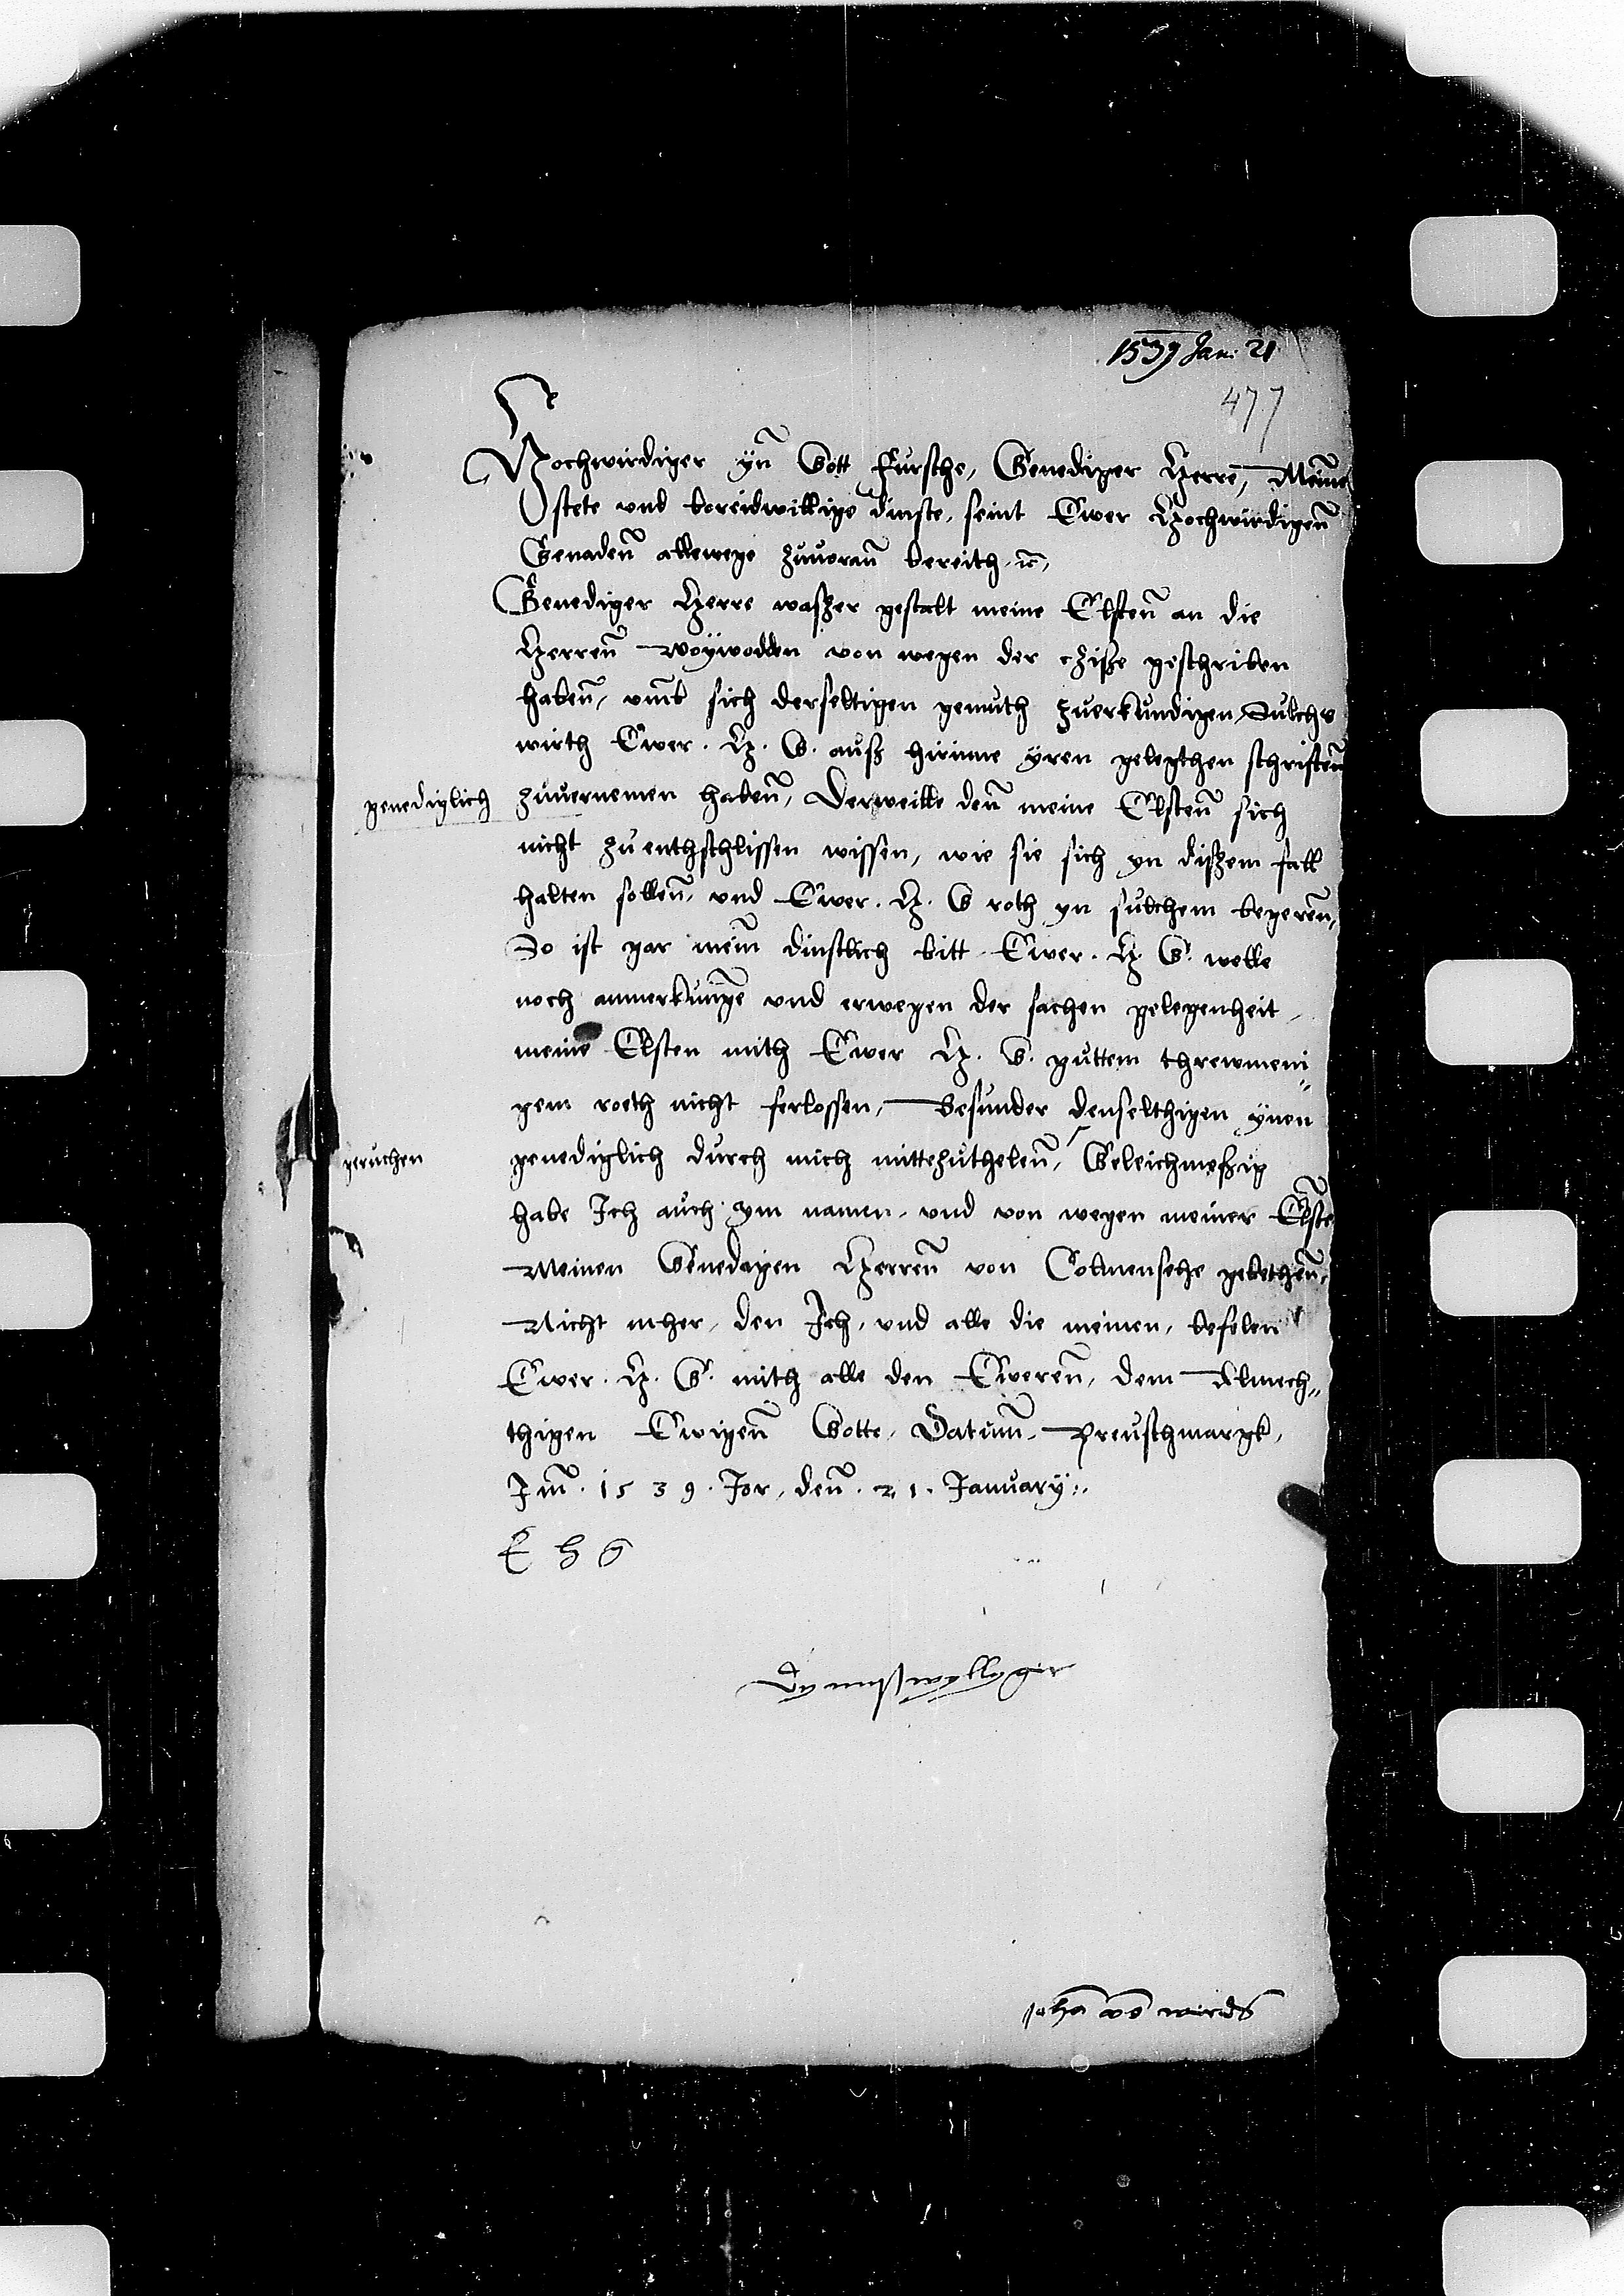 1539 Jan: 21
477
Hochwirdiger ynn Gott Fursthe, Genediger Herre, Meine
stete und bereidwillige dinste, seint Ewer Hochwirdigenn
Genadenn allewege zuuorann bereith, etc,
Genediger Herre waßer gestalt meine Elstenn an die
Herrenn Woÿwodden von wegen der cziße geschriben
habenn, vmb sich derselbigen gemuth zuerkundigen, Sulchs
wirth Ewer. H. G. auß hirinne ÿren gelegthen schriftenn
genediglich zuuernemen habenn, Derweille denn meine Elstenn sich
nicht zu enthschlissen wissen, wie sie sich yn dißem fall
halten sollenn, vnd Ewer. H. G roth yn sulchem begerenn,
So ist gar mein dinstlich bitt Ewer. H. G. welle
noch anmerkunge vnd erwegen der sachen gelegenheit,
meine Elsten mith Ewer H. G. guttem threwmeni„
gem roeth nicht ferlossen, besunder denselbigen ÿnen
geruchen genediglich durch mich mittezuthelenn, Geleichmeßig
habe Ich auch ym namen, vnd von wegen meiner Elste
Meinen Genedigen Herrenn von Colmensehe gebethenn,
Nicht mher, den Ich, vnd alle die meinen, befelen
Ewer. H. G. mith alle den Ewerenn, dem Almech„
thigen Ewigenn Gotte, Datum Preuschmargk,
Im. 1539. Jor, denn. 21. Januarÿ:.
E h G
Dynnstwyllyger